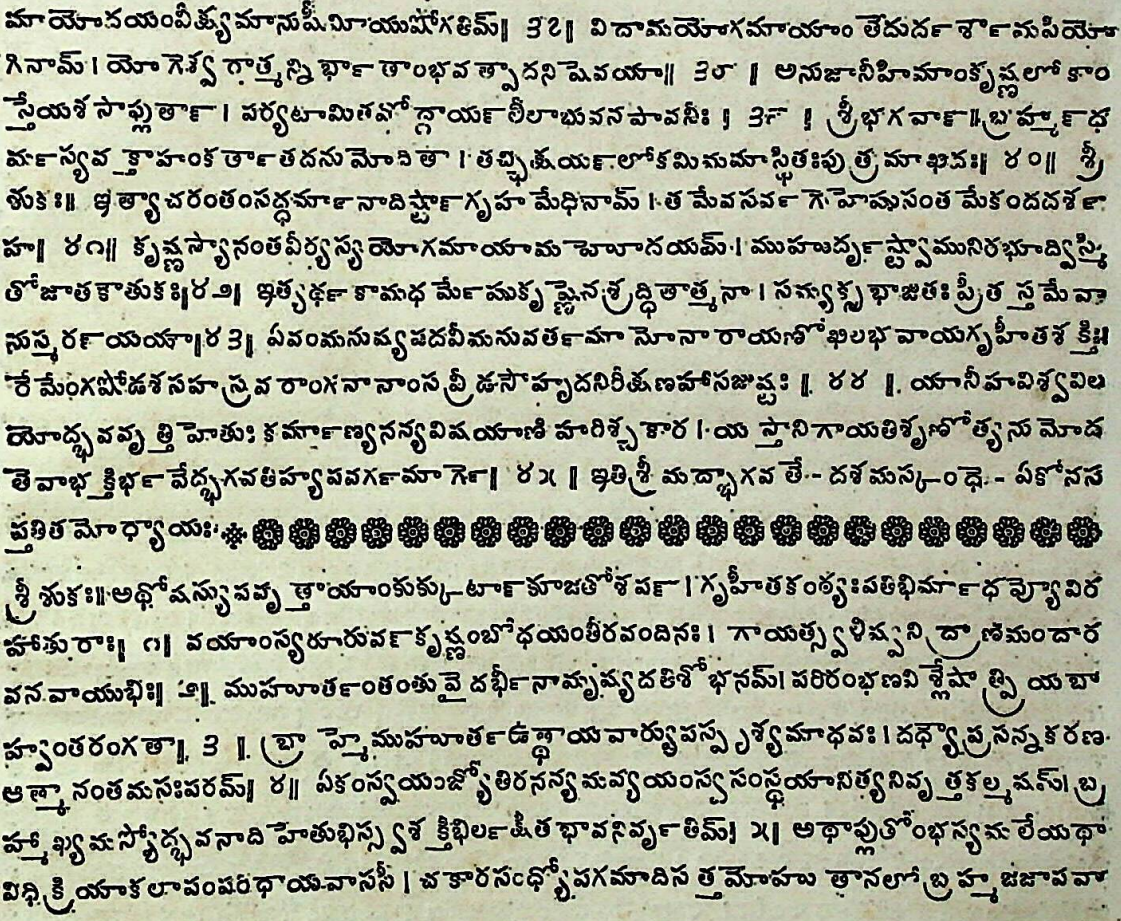 మాయోదయంవీక్ష్యమానుషీమీయుషోగతిమ్‖ ౩౭‖ విదామయోగమాయాం తేదుర్దర్శామపియో
గినామ్। యోగేశ్వరాత్మన్నిర్భాతాంభవత్పాదనిషేవయా‖ ౩౮ ‖ అనుజానీహిమాంకృష్ణలోకాం
స్తేయశసాప్లుతాన్। పర్యటామితవోద్గాయన్లీలాభువనపావనీః ‖ ౩౯ ‖ శ్రీభగవాన్‖బ్రహ్మన్ధ
ర్మస్యవక్తాహంకర్తాతదనుమోదితా। తచ్ఛిక్షయన్లోకమిమమాస్థితఃపుత్రమాఖిదః‖ ౪౦‖ శ్రీ
శుకః‖ ఇత్యాచరంతంసద్ధర్మాన్నాదిష్టాన్గృహమేధినామ్। తమేవసర్వగేహేషుసంతమేకందదర్శ
హ‖ ౪౧‖ కృష్ణస్యానంతవీర్యస్యయోగమాయామహోదయమ్। ముహుర్దృష్ట్వామునిరభూద్విస్మి
తోజాతకౌతుకః‖౪౨‖ ఇత్యర్థకామధర్మేషుకృష్ణేనశ్రద్ధితాత్మనా। సమ్యక్సభాజితఃప్రీతస్తమేవా
నుస్మరన్యయౌ‖౪౩‖ ఏవంమనుష్యపదవీమనువర్తమానోనారాయణోఖిలభవాయగృహీతశక్తిః।
రేమేంగషోడశసహస్రవరాంగనానాంసవ్రీడసౌహృదనిరీక్షణహాసజుష్టః ‖ ౪౪ ‖ యానీహవిశ్వవిల
యోద్భవవృత్తిహేతుః కర్మాణ్యనన్యవిషయాణి హరిశ్చకార। యస్తానిగాయతిశృణోత్యనుమోద
తేవాభక్తిర్భవేద్భగవతిహ్యపవర్గమార్గే‖ ౪౫ ‖ ఇతిశ్రీమద్భాగవతే - దశమస్కంధే - ఏకోనస
ప్తతితమోధ్యాయః
శ్రీశుకః‖అథోషస్యుపవృత్తాయాంకుక్కుటాన్కూజతోశపన్। గృహీతకంఠ్యఃపతిభిర్మాధవ్యోవిర
హాతురాః‖ ౧‖ వయాంస్యరూరువన్కృష్ణంబోధయంతీరవందినః। గాయత్స్వళిష్వనిద్రాణిమందార
వనవాయుభిః‖ ౨‖ ముహూర్తంతంతువైదర్భీనామృష్యదతిశోభనమ్। పరిరంభణవిశ్లేషాత్ప్రియబా
హ్వంతరంగతా‖ ౩ ‖ బ్రాహ్మేముహూర్తఉత్థాయవార్యుపస్పృశ్యమాధవః। దధ్యౌప్రసన్నకరణ
ఆత్మానంతమసఃపరమ్‖ ౪‖ ఏకంస్వయంజ్యోతిరనన్యమవ్యయంస్వసంస్థయానిత్యనివృత్తకల్మషమ్। బ్ర
హ్మాఖ్యమస్యోద్భవనాదిహేతుభిస్స్వశక్తిభిర్లక్షితభావనిర్వృతిమ్‖ ౫‖ అథాప్లుతోంభస్యమలేయథా
విధిక్రియాకలాపంపరిధాయవాససీ। చకారసంధ్యోపగమాదిసత్తమోహుతానలోబ్రహ్మజజాపవా